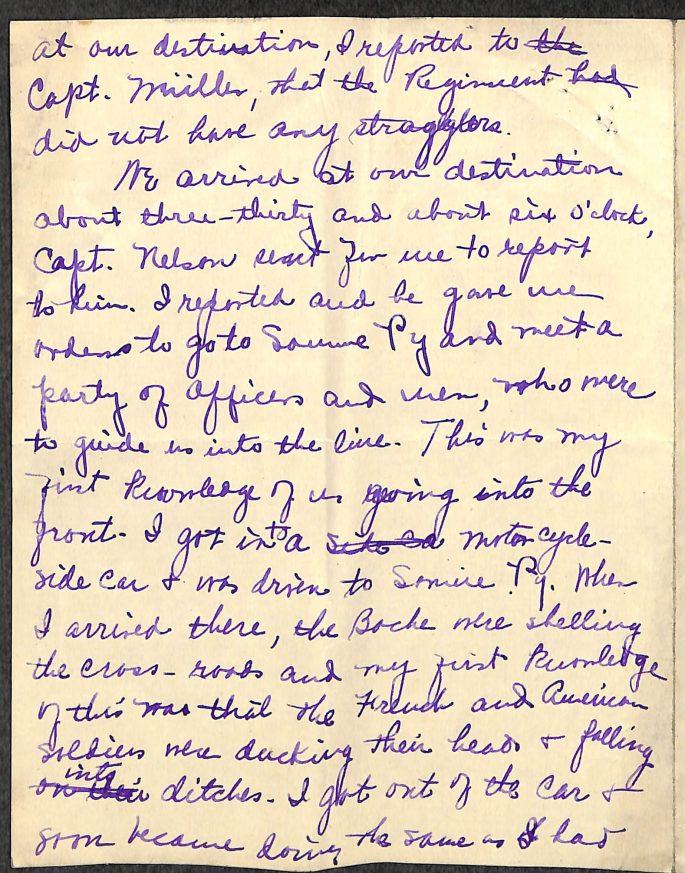 at our destination, I reported to the
Capt. Müller, that the Regiment had
did not have any stragglers.
We arrived at our destination
about three-thirty and about six o'clock,
Capt. Nelson sent for me to report
to him. I reported and he gave me
orders to go to Somme Py and meet a
party of Officers and men, who were
to guide us into the line. This was my
first knowledge of us going into the
front. I got into a side ca motorcycle-
side car & was driven to Somme Py. When
I arrived there, the Boche were shelling
the cross-roads and my first knowledge
of this was that the French and American
soldiers were ducking their heads & falling
on their into ditches. I got out of the car &
soon became doing the same as I had